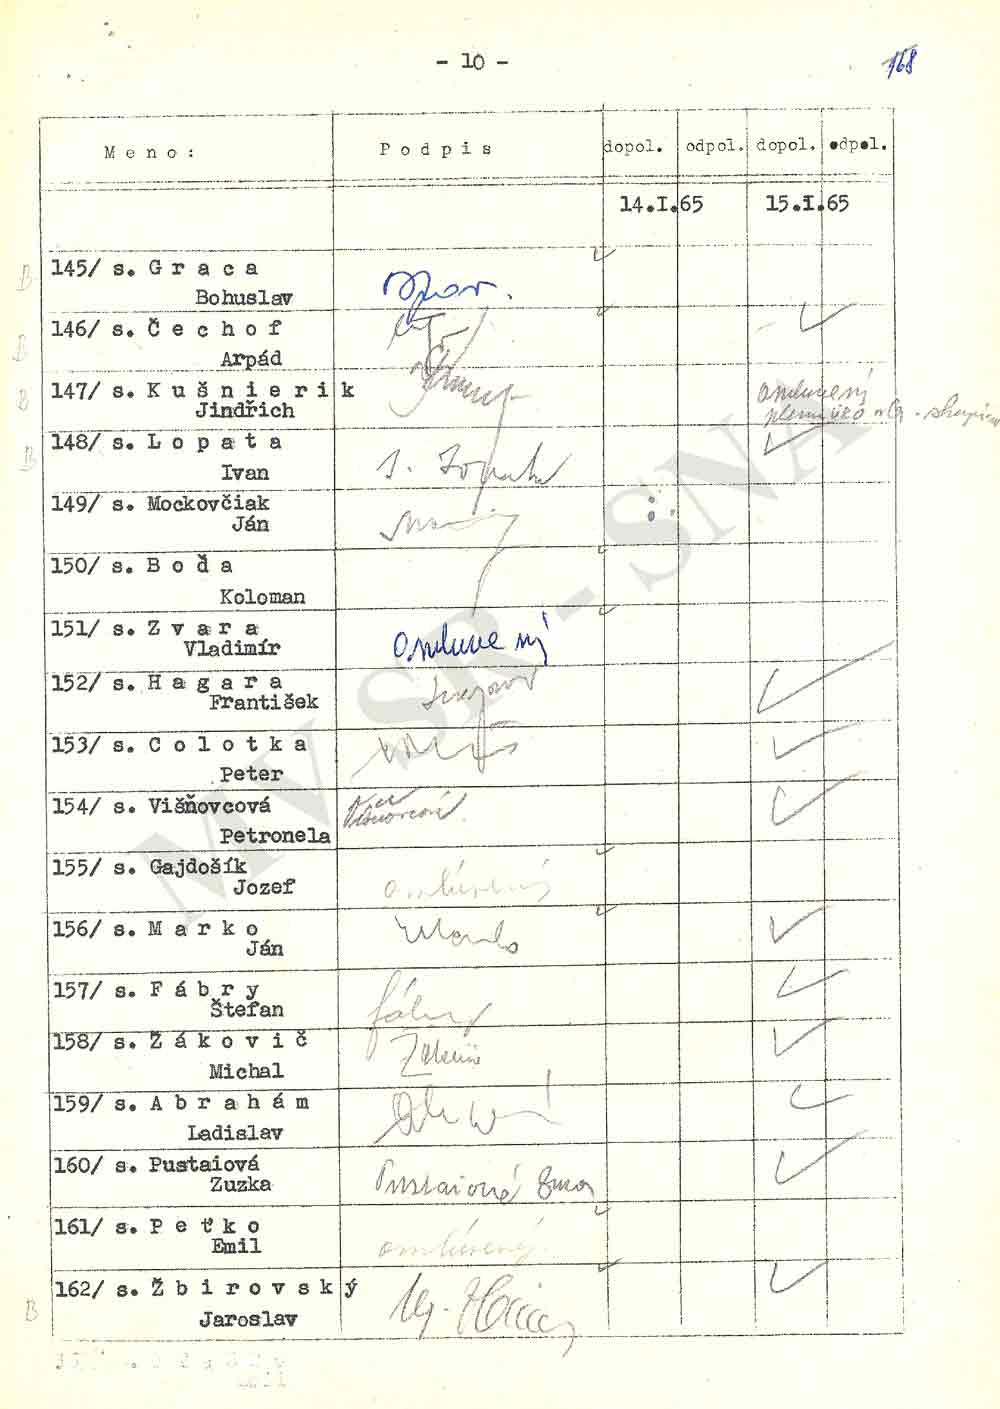 - 10 -
168
Meno: Podpis dopol. odpol. dopol. odpol.
14.I.65 15.I.65
B 145/ s. Graca
Bohuslav
B 146/ s. Čechof
Arpád
B 147/ s. Kušnierik
Jindřich
B 148/ s. Lopata
Ivan I. Lopata
149/ s. Mockovčiak
Ján
150/ s. Boďa
Koloman
151/ s. Zvara
Vladimír
152/ s. Hagara
František
153/ s. Colotka
Peter
154/ s. Višňovcová
Petronela
155/ s. Gajdošík
Jozef omluvený
156/ s. Marko
Ján Marko
157/ s. Fábry
Štefan Fábry
158/ s. Žákovič
Michal
159/ s. Abrahám
Ladislav
160/ s. Pustaiová
Zuzka Pustaiová Zuza
161/ s. Peťko
Emil omluvený
B 162/ s. Žbirovský
Jaroslav
MV SR - SNA